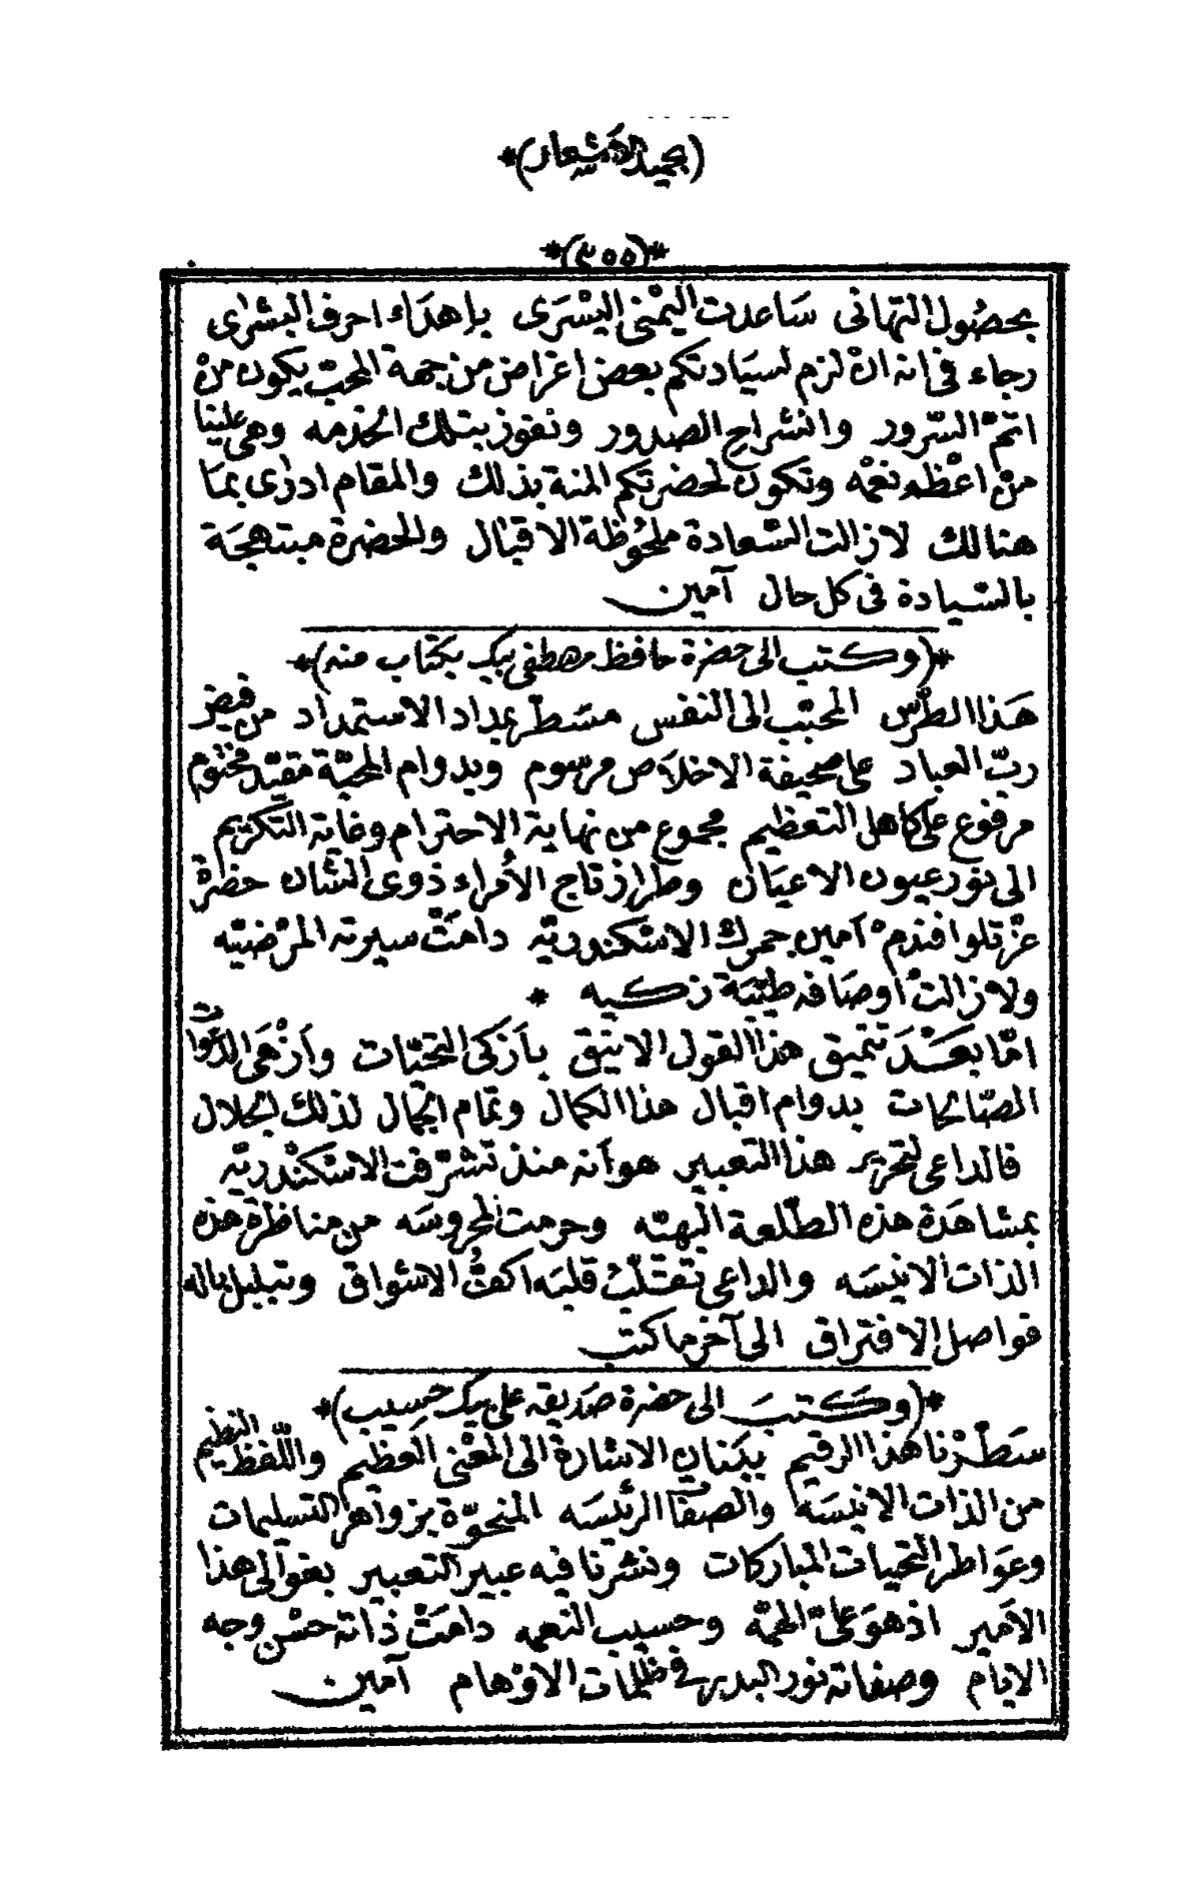 (بحميد الأشعار)*
*(٣٥٥)*
بحصُول التهانى سَاعدت اليمْنى اليسْرَى بإهدَاء احرف البشرٰى
رجاء فى انه انْ لزم لسيَادتكم بعض اغراض من جهة المحبّ يكون منْ
اتمّ السّرور وانشراح الصدور ونفوز بتلك الخدمه وهى علينا
منْ اعْظم نعْمه وتكون لحضرتكم المنة بذلك والمقام ادرٰى بمَا
هنالك لازالت السّعادة ملحُوظة الاقبال والحضرة مبتهجَة
بالسّيادة فى كل حال آمين
*(وكتب الى حضرة حافظ مصطفى بيك بكتاب منه)*
هَذا الطّرْس المحبّب الى النفس مسَطّر بمداد الاستمداد من فيض
ربّ العباد على صحيفة الاخلاَص مرسوم وبدوام المحبّة مقيّد مختوم
مرفوع على كاهل التعظيم مجموع من نهاية الاحترام وغاية التكريم
الى نور عيون الاعيَان وطراز تاج الأمراء ذوى الشان حضرة
عزّتلو افندم آمين جمرك الاسْكندريّه دامَتْ سيرته المرْضيّه
ولازالتْ اوصَافه طيّبَة زكيه *
امّا بعْد تنميق هذا القول الانيق بأزكى التحيّات وأزْهَى الدّعوات
الصّالحات بدوام اقبال هذا الكمال وتمام الجمال لذلك الجلال
فالداعى لتحرير هذا التعبير هو أنه منذ تشرّفت الاسْكنْدريّه
بمشاهَدة هذه الطّلعة البهيّه وحرمت المحروسَه من مناظرة هذه
الذات الانيسَه والداعى تقلّب قلبَه اكفّ الاشواق وتبلبل باله
فواصل الافتراق الى آخر ما كتب
*(وَكتبَ الى حضرة صَديقه على بيك حَسِيب)*
سَطّرْنا هذا الرقيم ببَنان الاشارة الى المعْنى العظيم واللّفظ النظيم
من الذات الانيسَة والصّفات الرئيسَه المنحوّة بزواهر التسليمات
وعوَاطر التحيات المباركات ونشرنا فيه عبير التعبير بقوالى هذا
الامير اذ هوَ علىّ الهمّه وحسيب النعمه دامَتْ ذاته حسْن وجه
الايام وصفاته نور البدر فى ظلمات الاوْهام آمين